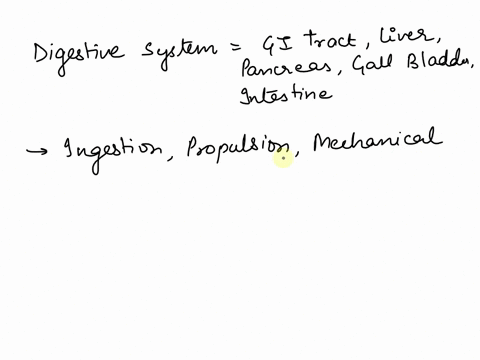 Digestive System = GI tract, Liver,
Pancreas, Gall Bladder,
Intestine
→ Ingestion, Propulsion, Mechanical